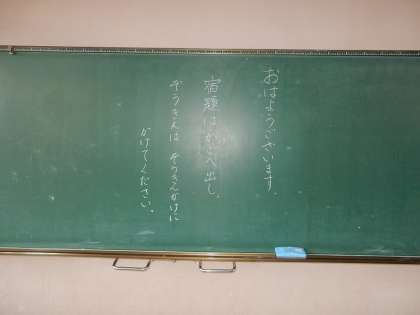 おはようございます。
宿題はかご入出し。
ぞうきんは ぞうきんかけに
かけてください。